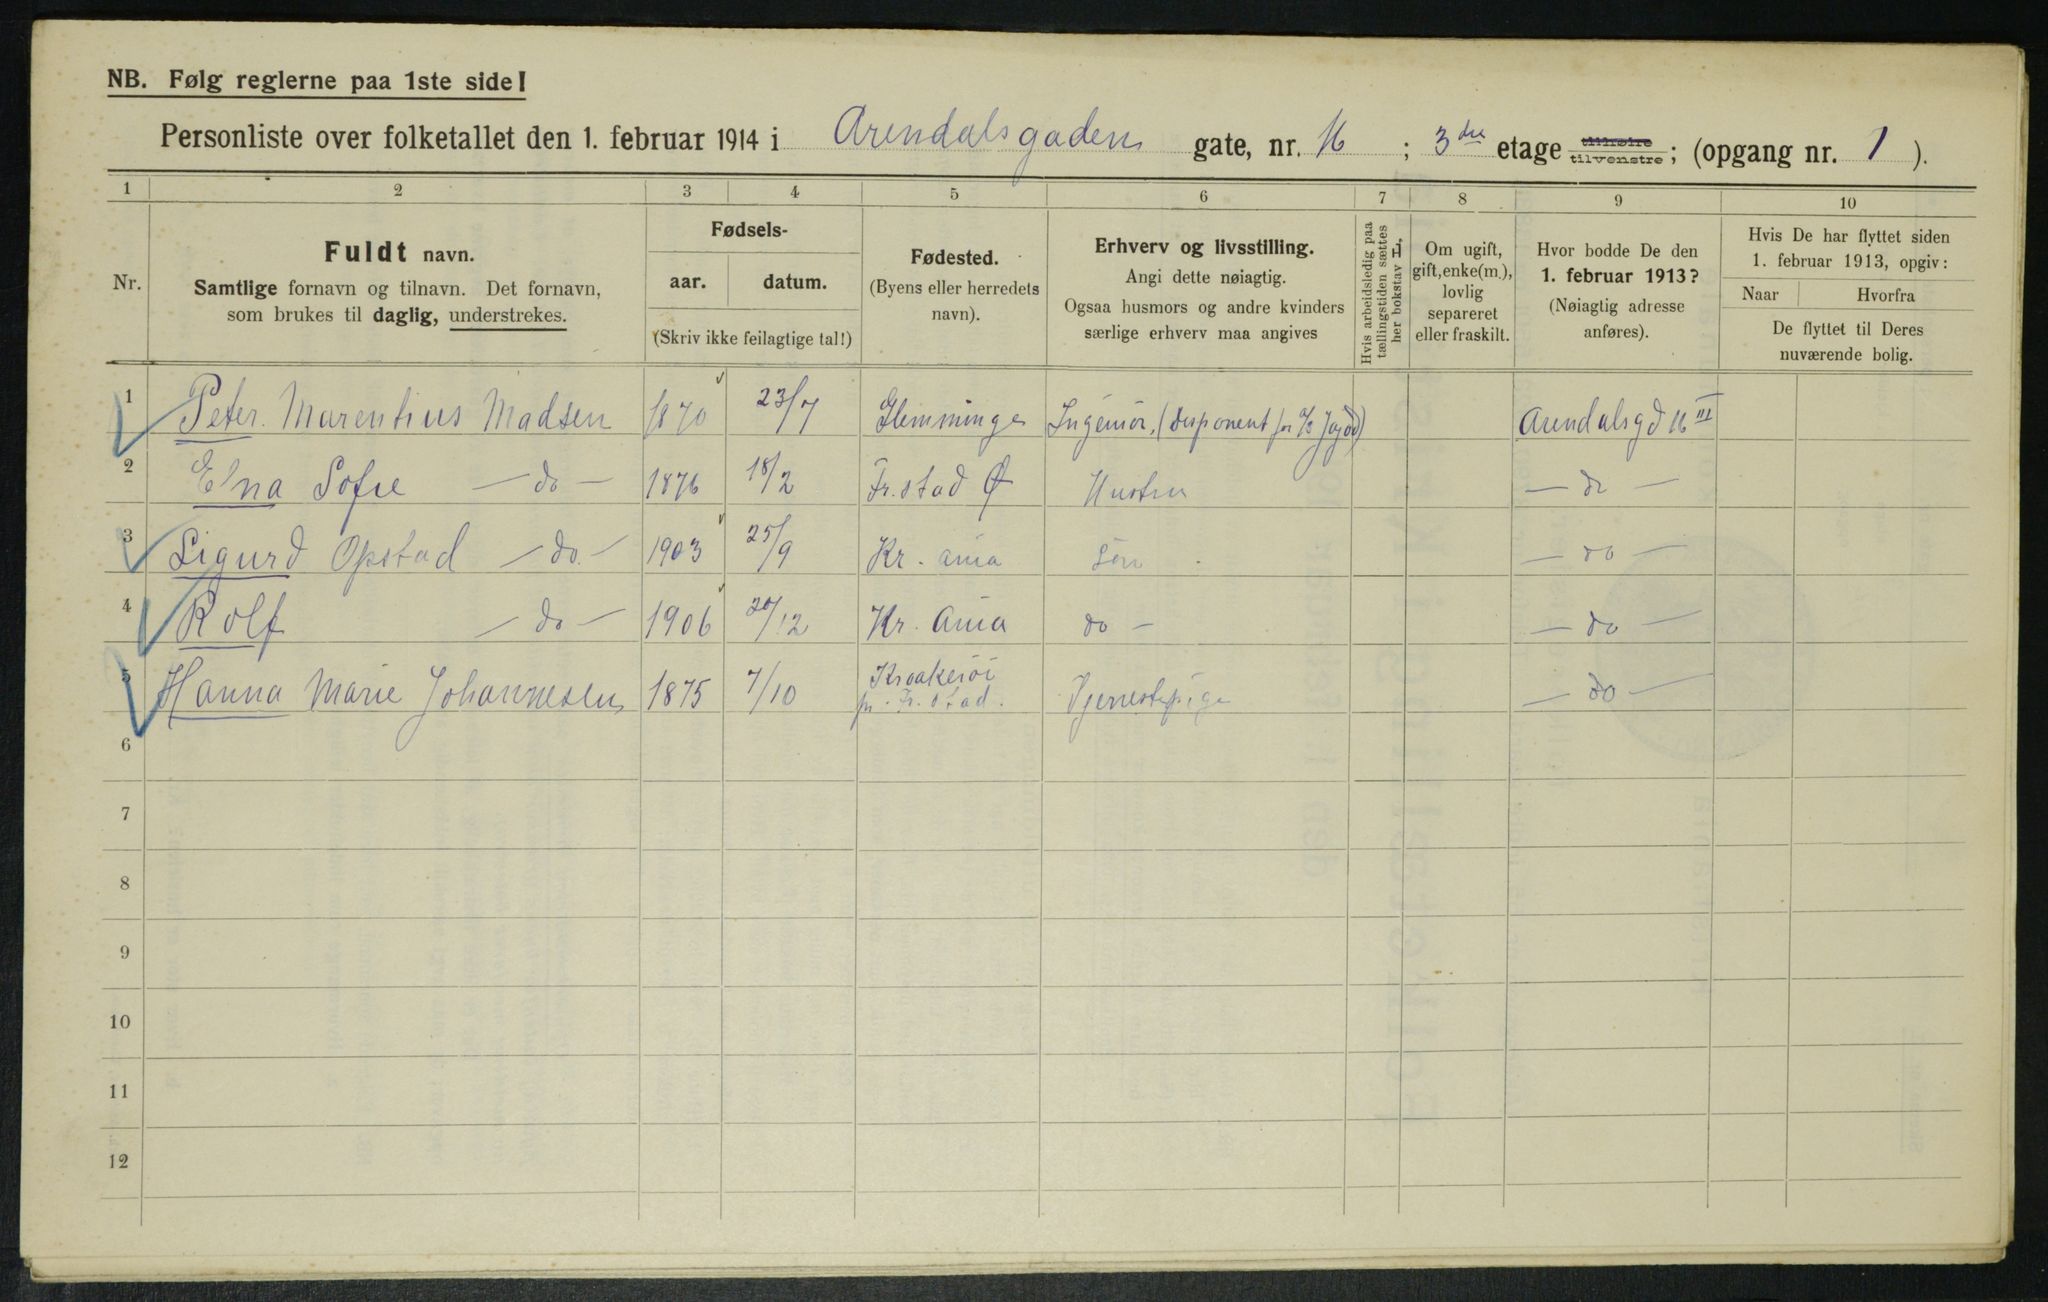 NB. Følg reglerne paa 1ste side!
Personliste over folketallet den 1. februar 1914 i Arendalsgaden gate, nr. 16 ; 3dre etage tilhøire tilvenstre ; (opgang nr. 1 ).
1 2 3 4 5 6 7 8 9 10
Nr.
Fuldt navn.
Samtlige fornavn og tilnavn. Det fornavn,
som brukes til daglig, understrekes.
Fødsels-
aar. datum.
(Skriv ikke feilagtige tal!)
Fødested.
(Byens eller herredets
navn).
Erhverv og livsstilling.
Angi dette nøiagtig.
Ogsaa husmors og andre kvinders
særlige erhverv maa angives
Hvis arbeidsledig paa
tællingstiden sættes
her bokstav L.
Om ugift,
gift, enke(m.),
lovlig
separeret
eller fraskilt.
Hvor bodde De den
1. februar 1913?
(Nøiagtig adresse
anføres).
Hvis De har flyttet siden
1. februar 1913, opgiv:
Naar Hvorfra
De flyttet til Deres
nuværende bolig.
1 Peter Marentius Madsen 1870 23/7 Glemminge Ingeniør, (Disponent for A/S Arendalsgd 16 III
2 Elna Sofie — do — 1876 18/2 Fr.stad Ø Hustru — do —
3 Sigurd Opstad — do — 1903 25/9 Kr. ania søn — do —
4 Rolf — do — 1906 20/12 Kr. ania do — — do —
5 Hanna Marie Johannesen 1875 7/10 Kraakerøi
pr. Fr.stad. Tjenestepige — do —
6
7
8
9
10
11
12